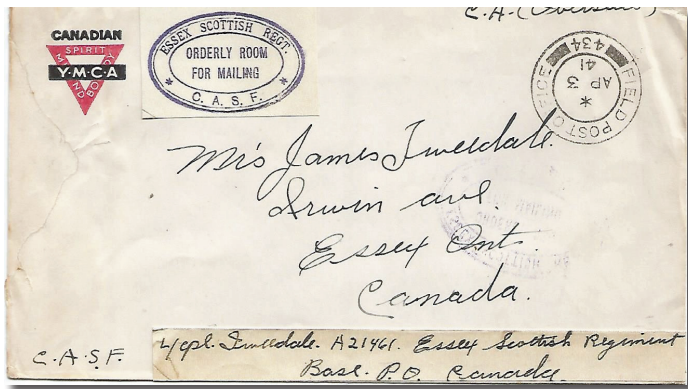 C.A.(Overseas)
CANADIAN
SPIRIT
Y·M·C·A
MIND
BODY
ESSEX SCOTTISH REGT.
ORDERLY ROOM
FOR MAILING
* C. A. S. F. *
FIELD POST OFFICE
434
*
AP 3
41
Mrs James Tweedale.
Irwin ave.
Essex Ont.
Canada.
C.A.S.F.
L/cpl. Tweedale. A21461. Essex Scottish Regiment
Base. P.O. Canada.